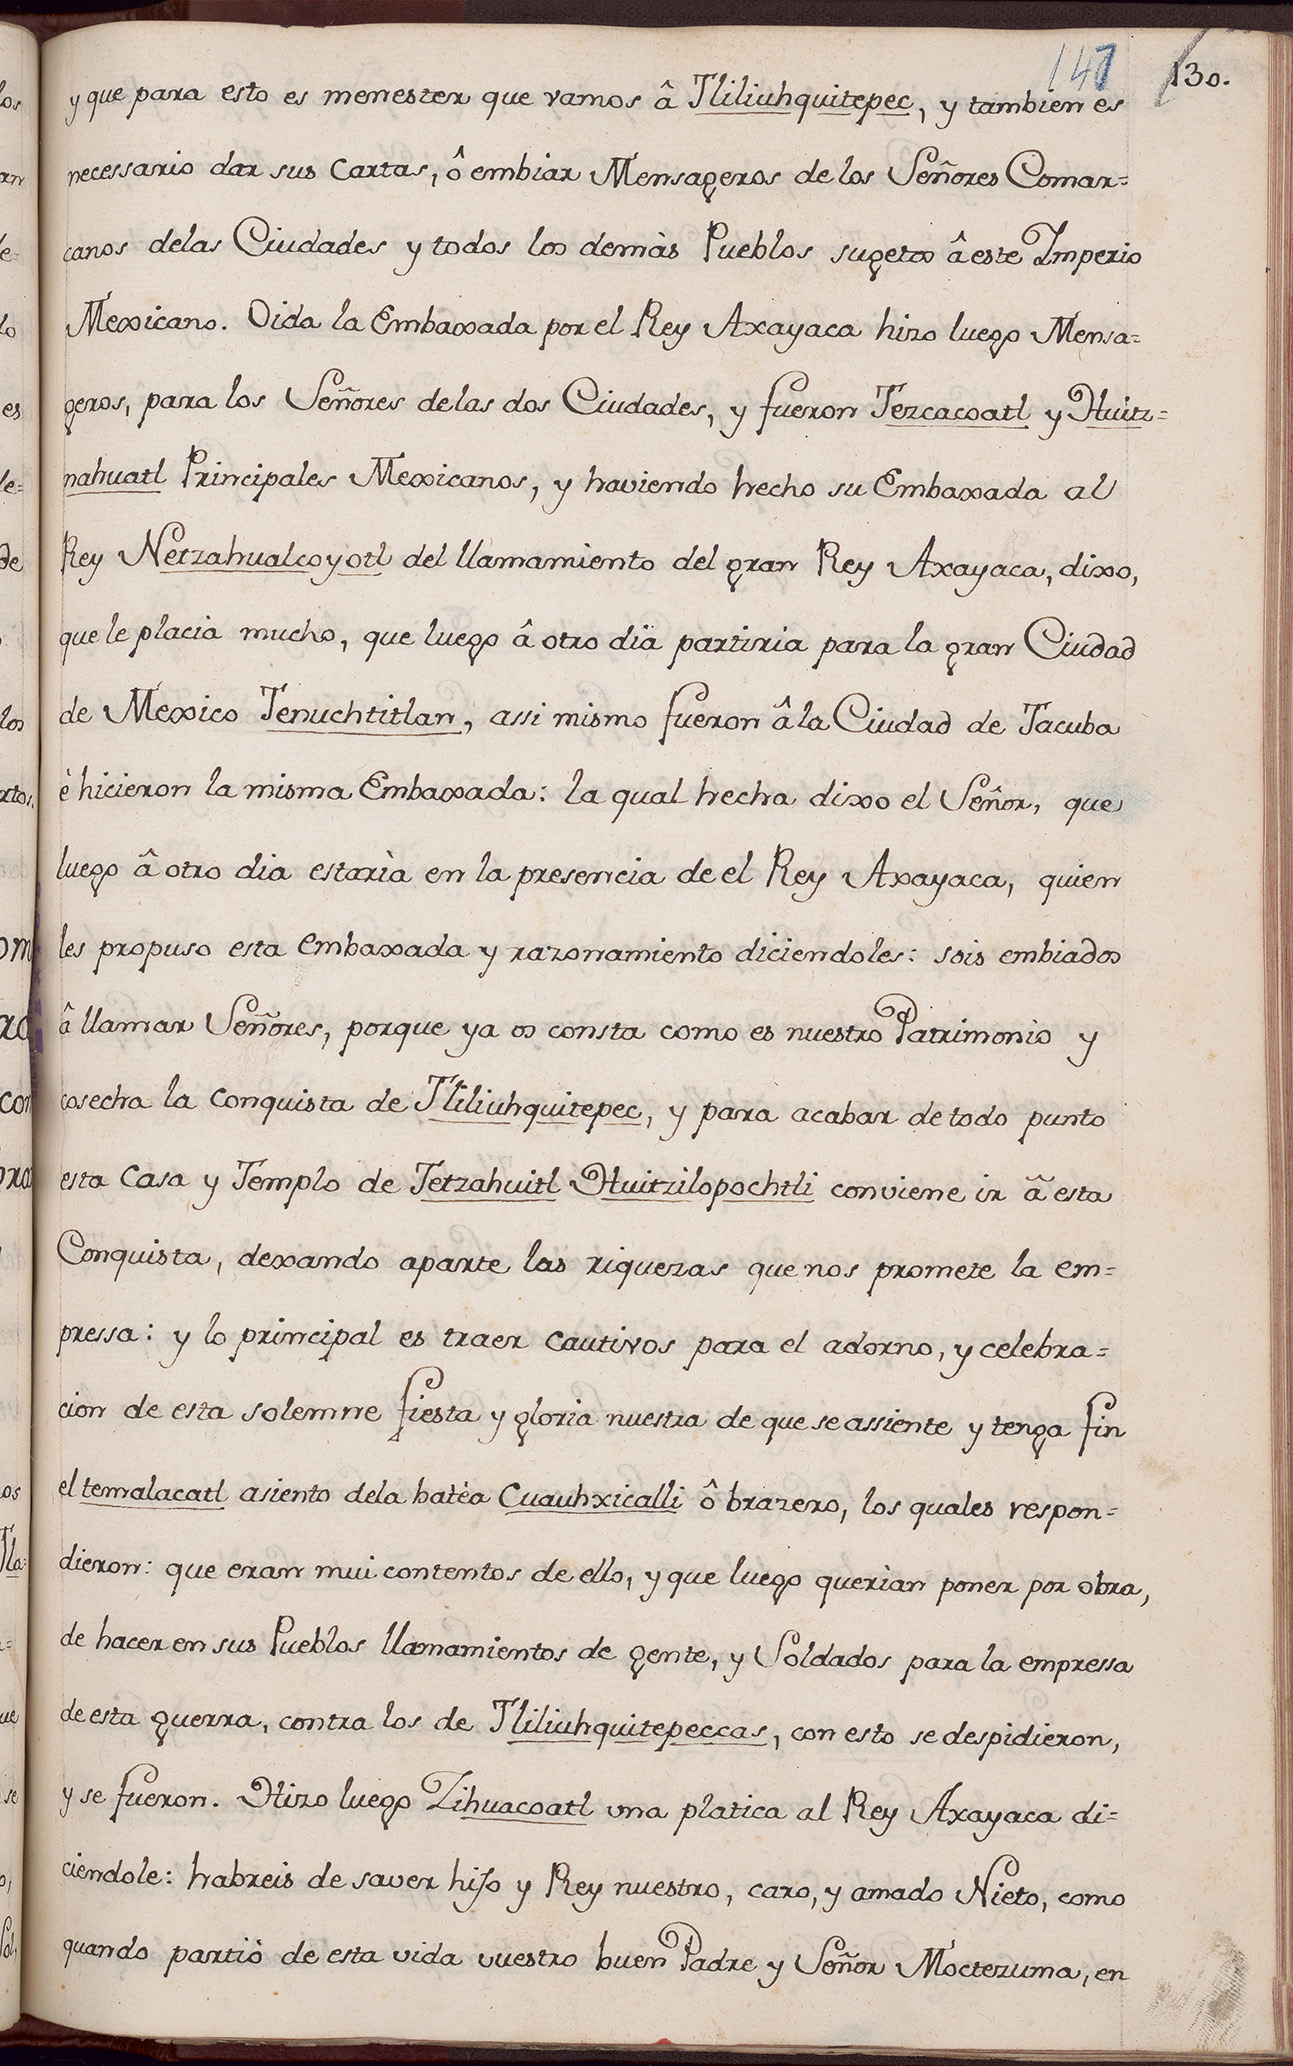 147 130.
y que para esto es menester que vamos â Tliliuhquitepec, y tambien es
necessario dar sus Cartas, ô embiar Mensageros de los Señores Comar=
canos delas Ciudades y todos los demàs Pueblos sugetos â este Imperio
Mexicano. Oida la Embaxada por el Rey Axayaca hizo luego Mensa=
geros, para los Señores de las dos Ciudades, y fueron Tezcacoatl y Huitz=
nahuatl Principales Mexicanos, y haviendo hecho su Embaxada al
Rey Netzahualcoyotl del llamamiento del gran Rey Axayaca, dixo,
que le placia mucho, que luego â otro dia partiria para la gran Ciudad
de Mexico Tenuchtitlan, assi mismo fueron â la Ciudad de Tacuba
è hicieron la misma Embaxada: la qual hecha dixo el Señor, que
luego â otro dia estarìa en la presencia de el Rey Axayaca, quien
les propuso esta embaxada y razonamiento diciendoles: sois embiados
â llamar Señores, porque ya os consta como es nuestro Patrimonio y
cosecha la conquista de Tliliuhquitepec, y para acabar de todo punto
esta Casa y Templo de Tetzahuitl Huitzilopochtli conviene ir â esta
Conquista, dexando aparte las riquezas que nos promete la em=
pressa: y lo principal es traer cautivos para el adorno, y celebra=
cion de esta solemne fiesta y gloria nuestra de que se assiente y tenga fin
el temalacatl asiento dela batèa Cuauhxicalli ô brazero, los quales respon=
dieron: que eran mui contentos de ello, y que luego querian poner por obra,
de hacer en sus Pueblos llamamientos de gente, y Soldados para la empressa
de esta guerra, contra los de Tliliuhquitepeccas, con esto se despidieron,
y se fueron. Hizo luego Zihuacoatl una platica al Rey Axayaca di=
ciendole: habreis de saver hijo y Rey nuestro, caro, y amado Nieto, como
quando partiò de esta vida vuestro buen Padre y Señor Moctezuma, en